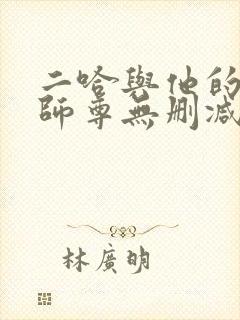 二哈與他的
師尊無刪減
林廣明